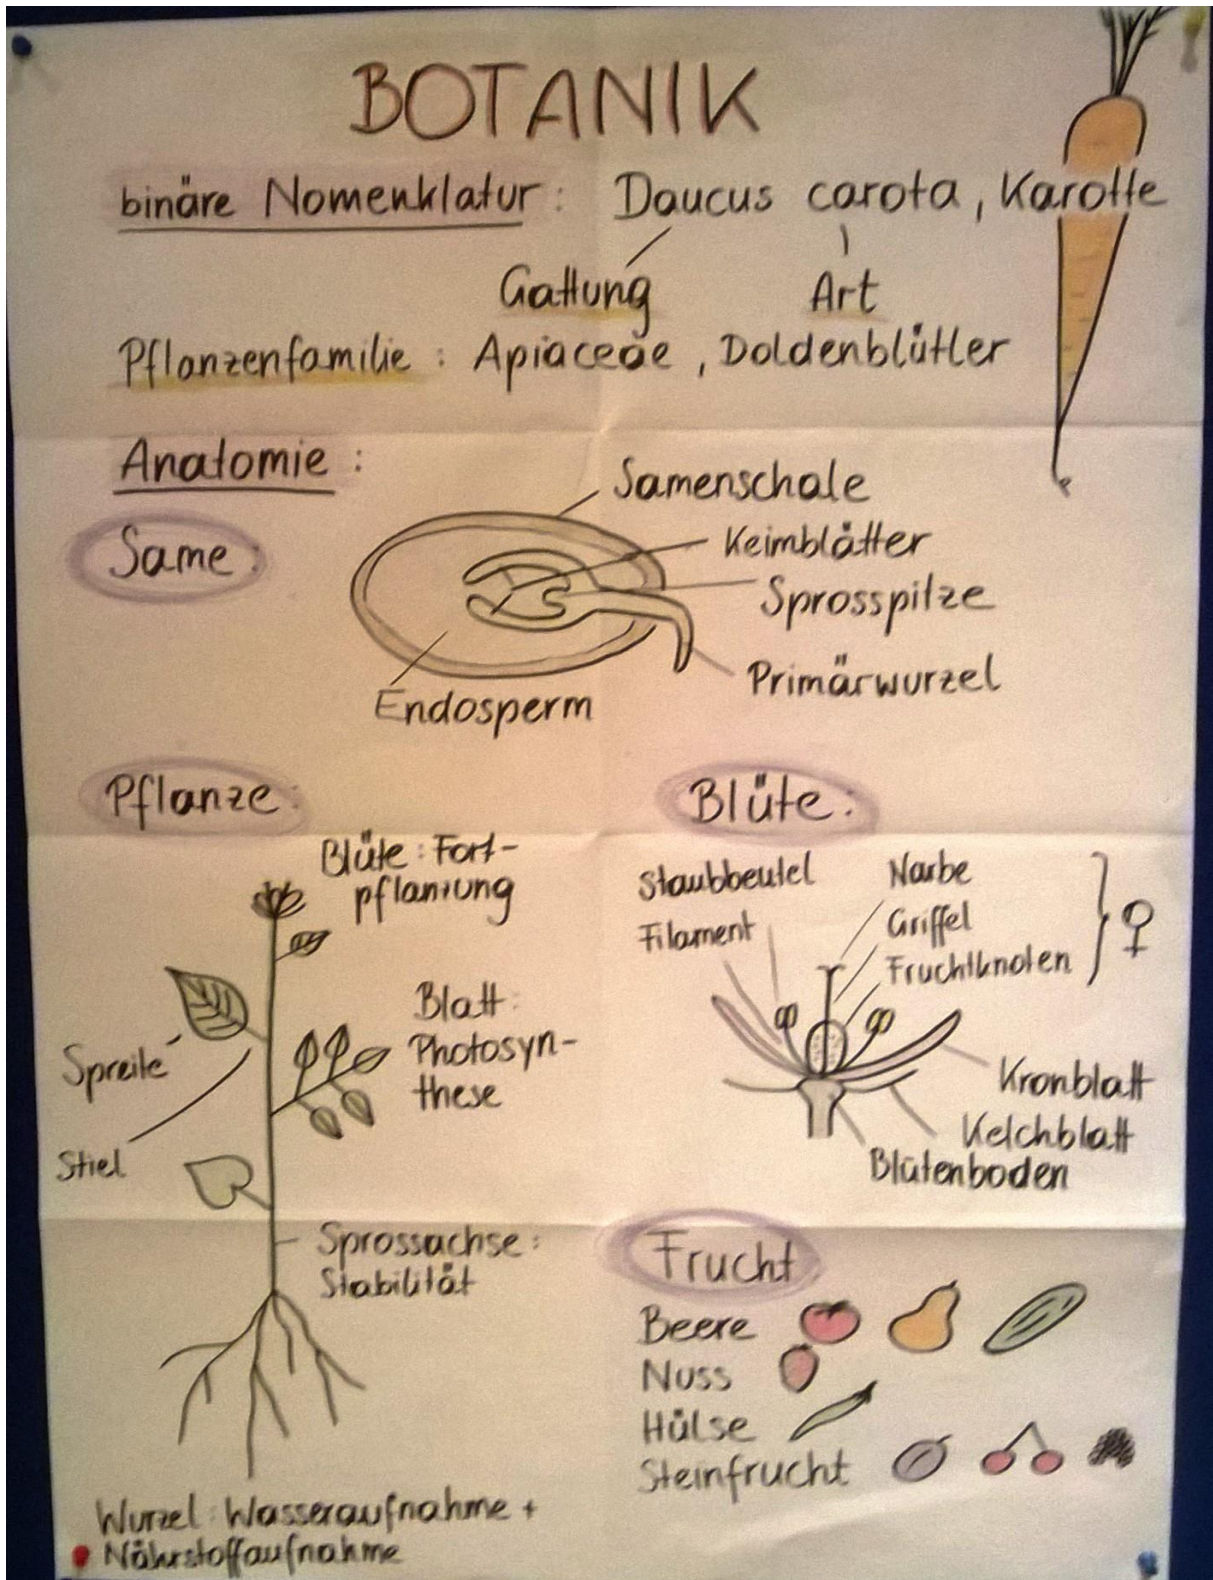 BOTANIK
binäre Nomenklatur: Daucus carota, Karotte
Gattung Art
Pflanzenfamilie: Apiaceae, Doldenblütler
Anatomie:
Same:
Samenschale
Keimblätter
Sprosspitze
Primärwurzel
Endosperm
Pflanze:
Blüte: Fort-
pflanzung
Blatt:
Photosyn-
these
Spreite
Stiel
Sprossachse:
Stabilität
Wurzel: Wasseraufnahme +
Nährstoffaufnahme
Blüte:
Staubbeutel
Filament
Narbe
Griffel
Fruchtknoten
♀
Kronblatt
Kelchblatt
Blütenboden
Frucht
Beere
Nuss
Hülse
Steinfrucht